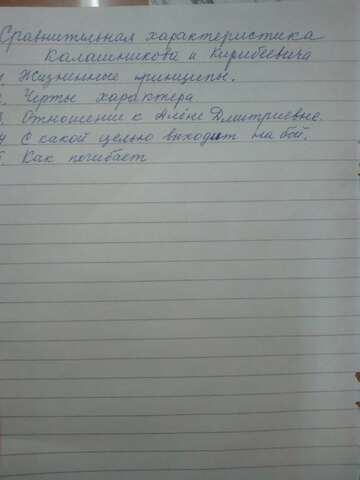 Сравнительная характеристика
Калашникова и Кирибеевича
1. Жизненные принципы.
2. Черты характера
3. Отношение к Алёне Дмитриевне.
4. С какой целью выходит на бой.
5. Как погибает